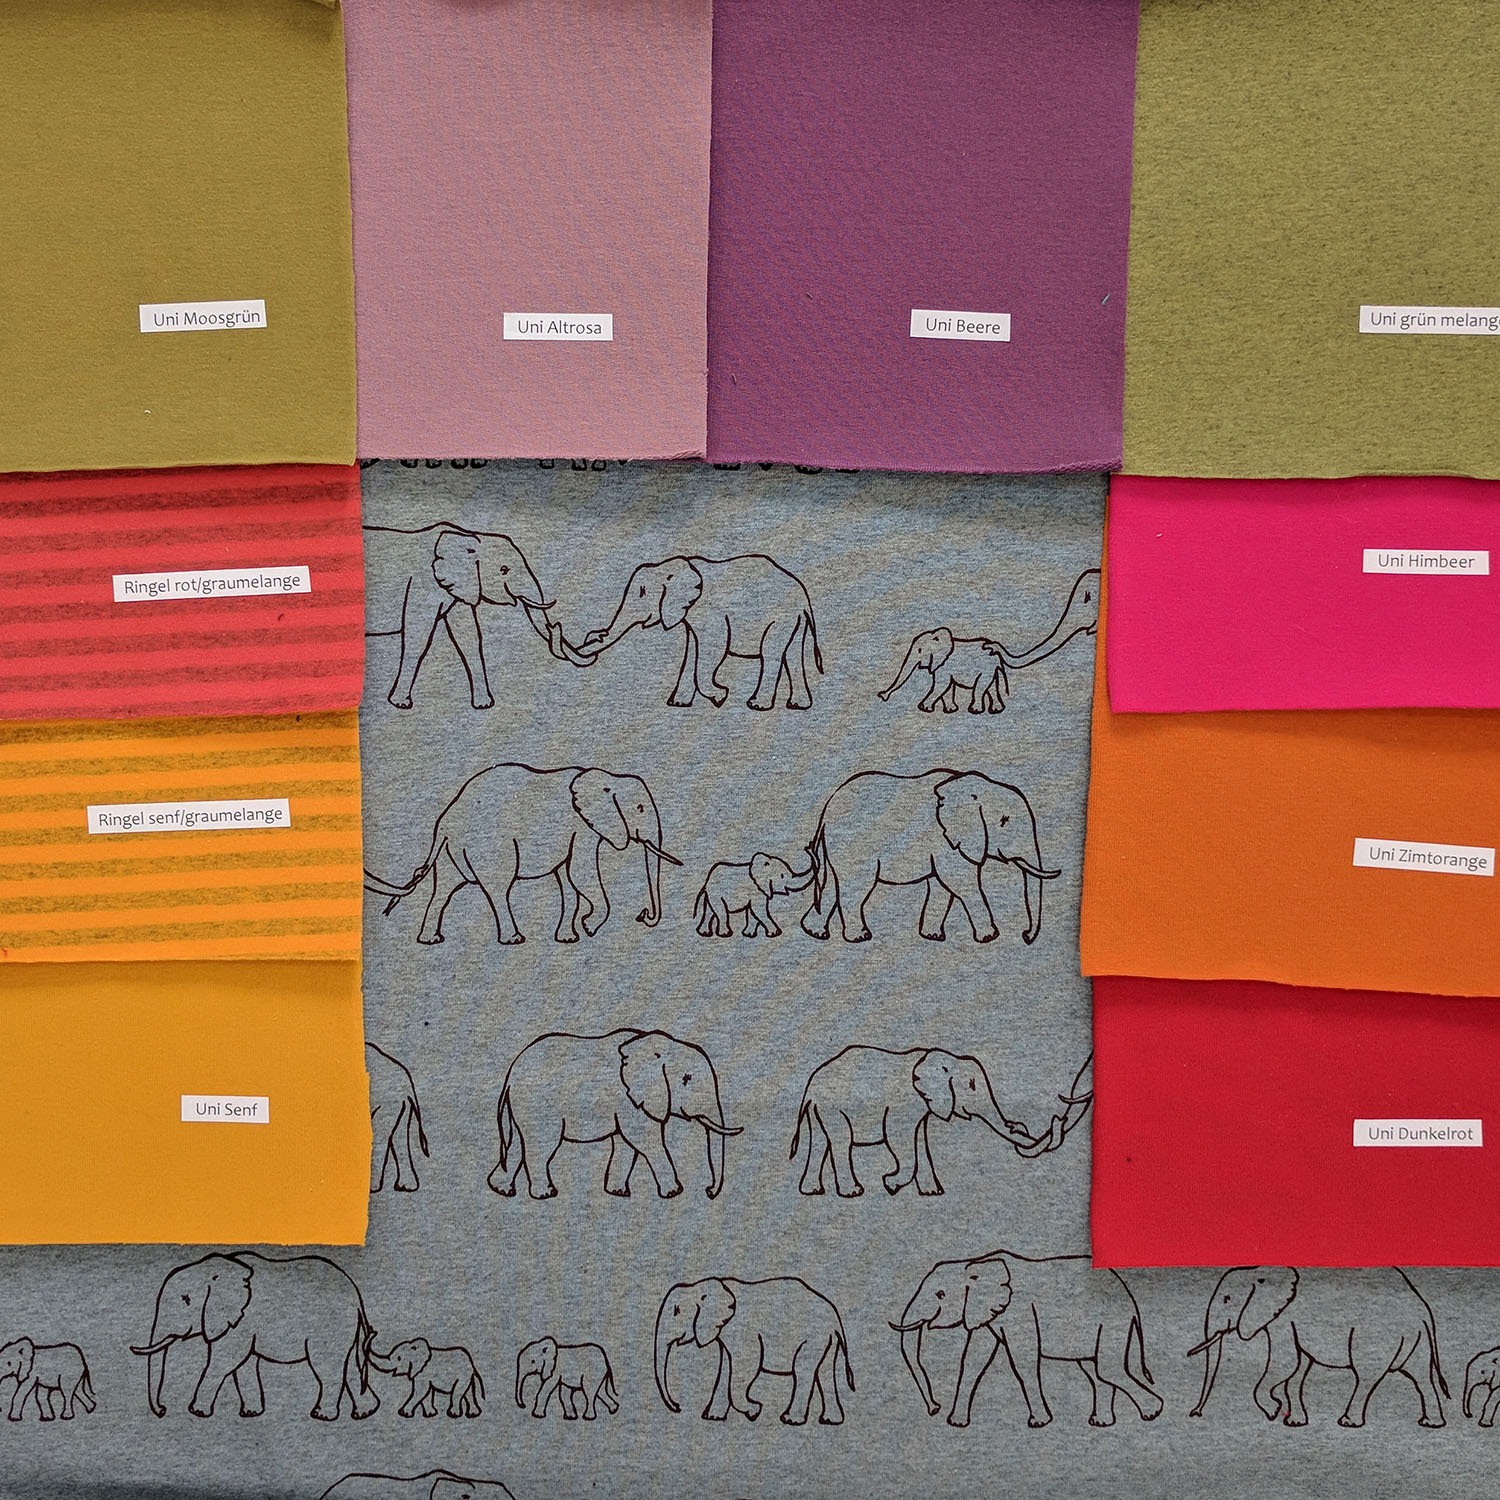 Uni Moosgrün
Uni Altrosa
Uni Beere
Uni grün melange
Ringel rot/graumelange
Uni Himbeer
Ringel senf/graumelange
Uni Zimtorange
Uni Senf
Uni Dunkelrot